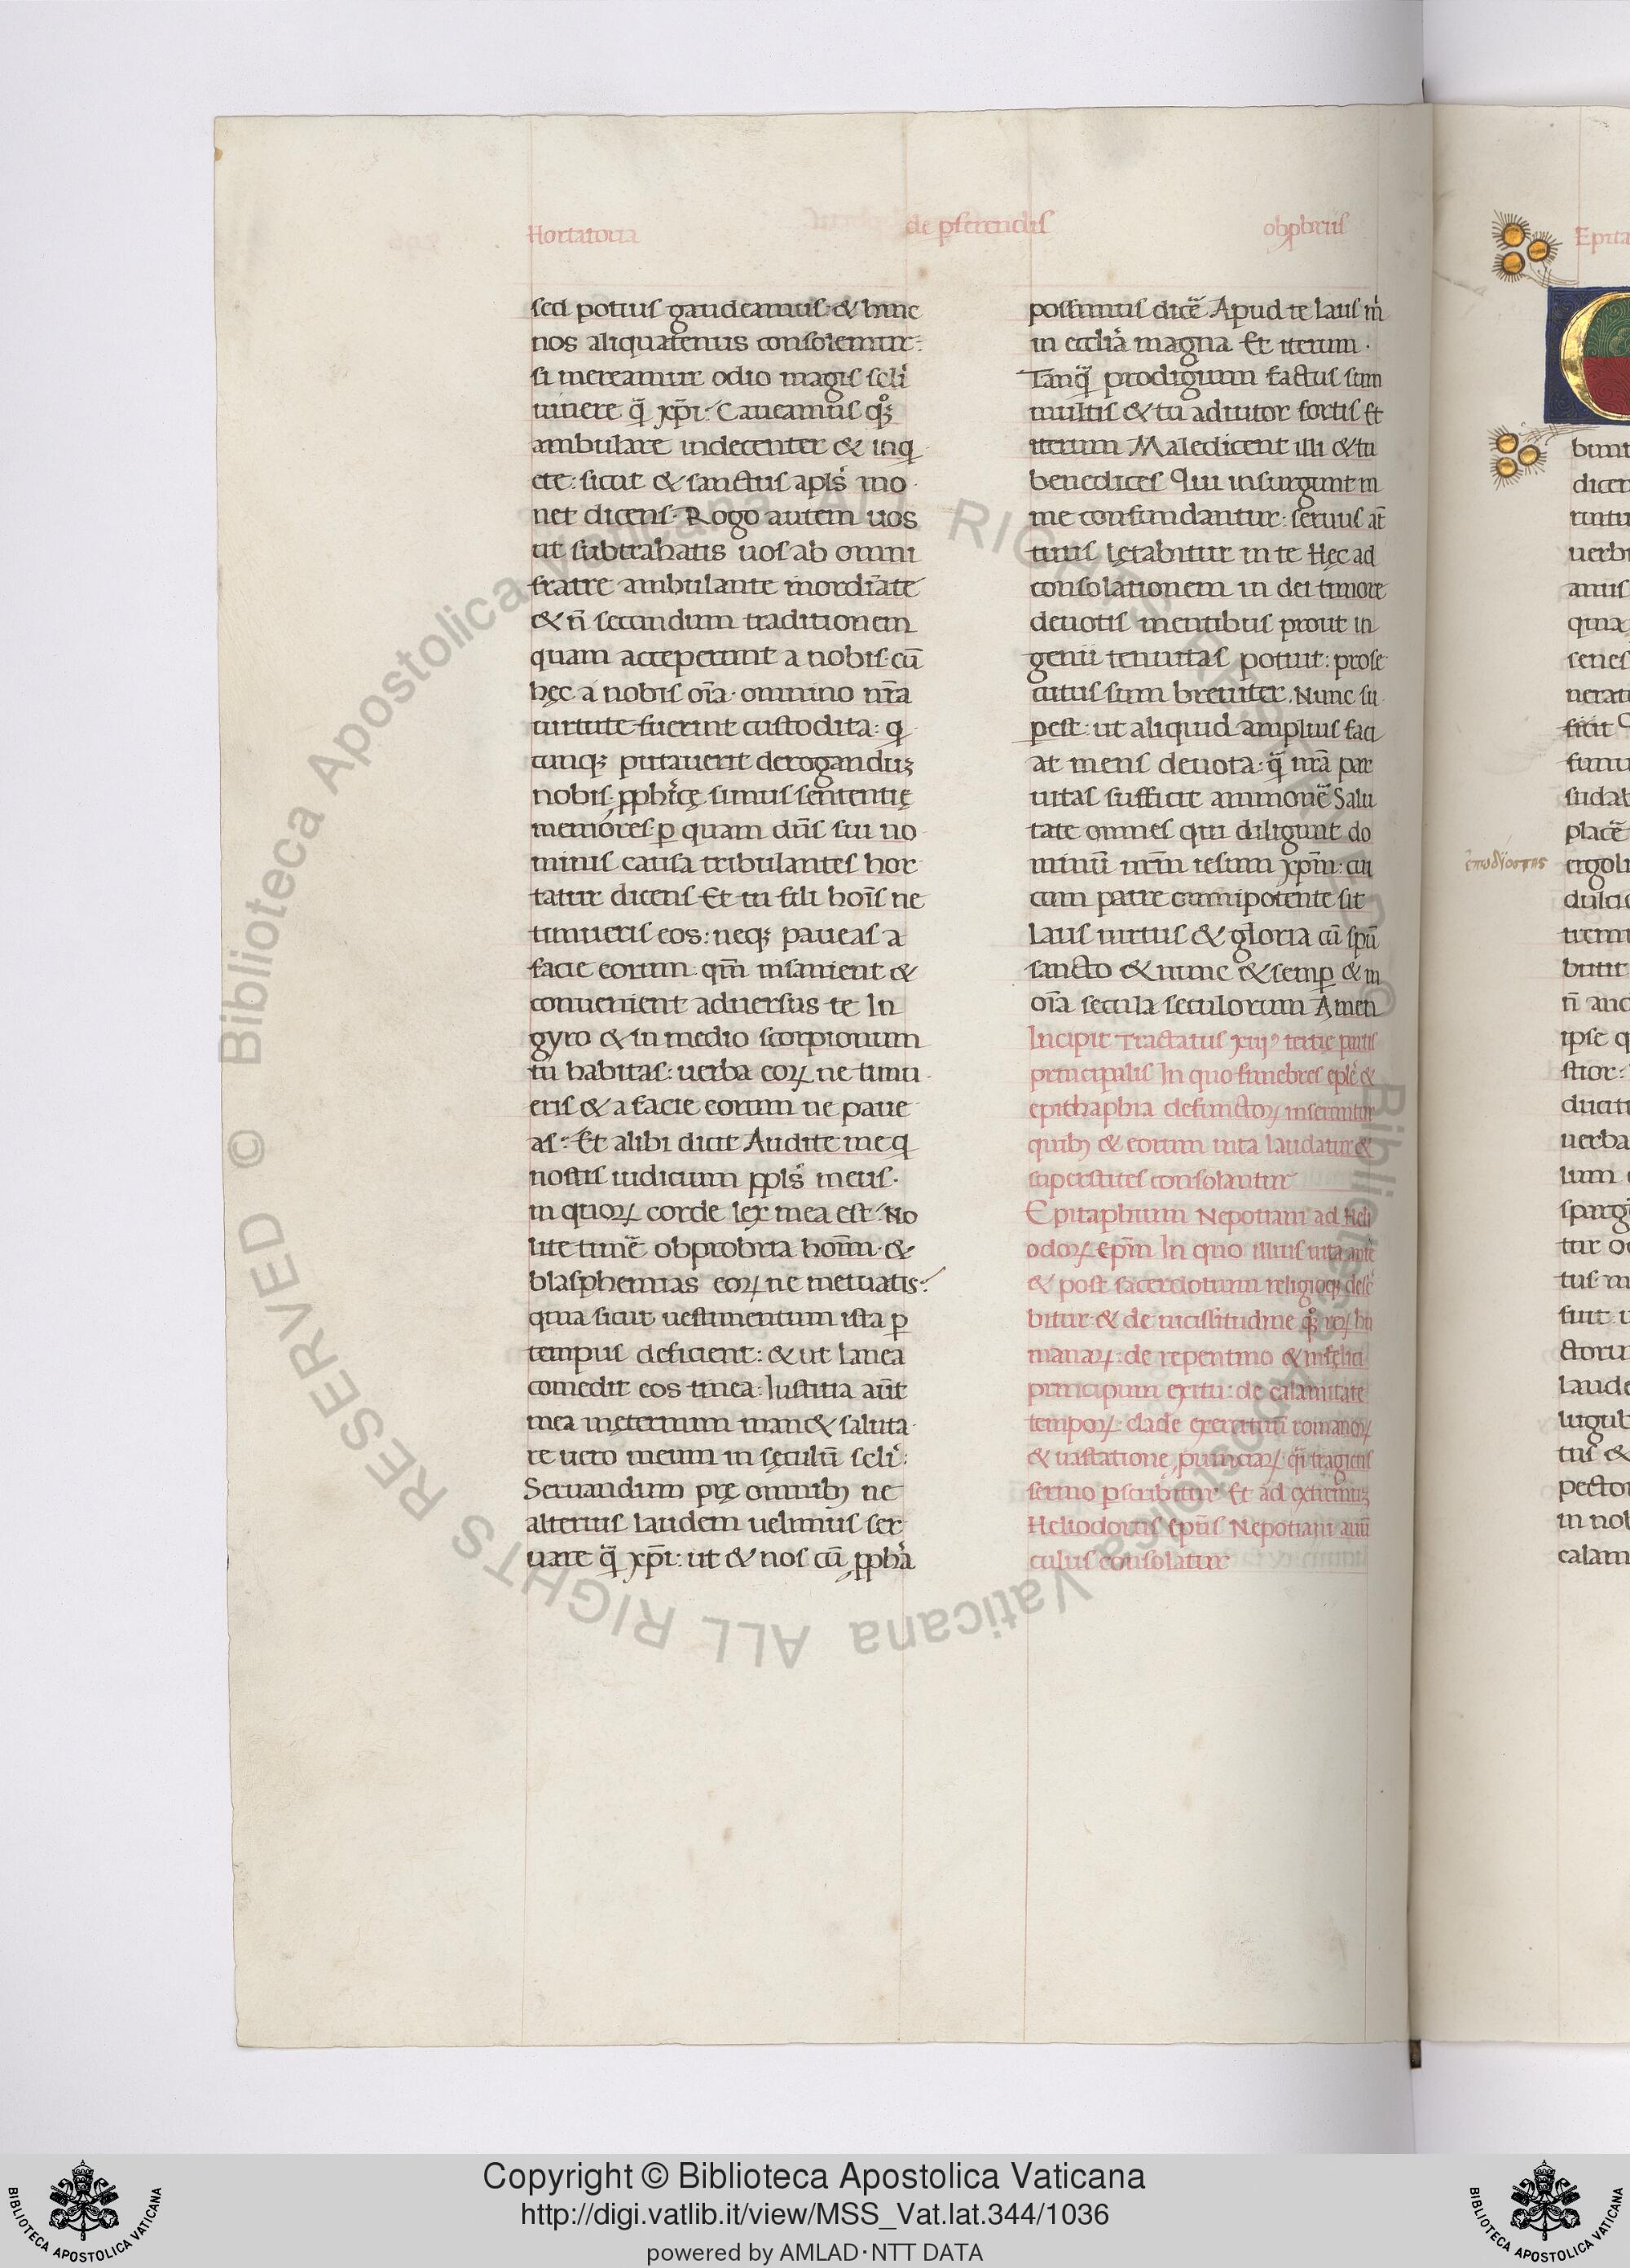 Hortatoria de ꝑferendis obpbriis
sed potius gaudeamus: & hinc
nos aliquatenus consolemur:
si mereamur odio magis scli
uiuere q̃ xp̄i: Caueamus qꝫ
ambulare indecenter & inq
ete: sicut & sanctus apls mo
net dicens. Rogo autem uos
ut subtrahatis uos ab omni
fratre ambulante inordĩate
& ñ secundum traditionem
quam acceperunt a nobis. cũ
hęc a nobis oĩa. omnino nr̃a
uirtute fuerint custodita: q
cunqꝫ putauerit derogandũ
nobis. ꝓphicę simus sententię
memores. ꝑ quam dñs sui no
minis causa tribulantes hor
tatur dicens Et tu fili hoĩs ne
timueris eos: neqꝫ paueas a
facie eorum: qm̃ insanient &
conuenient aduersus te In
gyro & in medio scorpionum
tu habitas: uerba eoꝝ ne timu
eris & a facie eorum ne paue
as: Et alibi dicit Audite me q
nostis iudicium ppls meus.
in quoꝝ corde lex mea est: No
lite timẽ obprobria hoĩm. &
blasphemias eoꝝ ne metuatis:
quia sicut uestimentum ista ꝑ
tempus deficient: & ut lanea
comedit eos tinea: Iustitia aũt
mea inęternum man& saluta
re uero meum in sęculũ scli:
Seruandum prę omnibꝫ ne
alterius laudem uelimus ser
uare q̃ xp̄i: ut & nos cũ ꝓpha
possimus dicẽ Apud te laus m
in ecclia magna Et iterum.
Tanq̃ prodigium factus sum
multis & tu adiutor fortis Et
iterum Maledicent illi & tu
benedices Qui insurgunt in
me confundantur: seruus at̃
tuus lętabitur in te Hęc ad
consolationem in dei timore
deuotis mentibus prout in
genii tenuitas potuit: prose
cutus sum breuiter. Nunc su
ꝑest: ut aliquid amplius faci
at mens deuota: q̃ nr̃a par
uitas sufficit ammonẽ Salu
tate omnes qui diligunt do
minũ nr̃m iesum xp̄m: cui
cum patre omnipotente sit
laus uirtus & gloria cũ spũ
sancto & nunc & semꝑ & in
oĩa secula seculorum Amen
Incipit Tractatus xiii⁹ tertię partis
principalis In quo funebres eplę &
epithaphia defunctoꝝ inseruntur
quibꝫ & eorum uita laudatur &
superstites consolantur
Epitaphium Nepotiani ad Heli
odoꝝ epm̃ In quo illius uita ante
& post sacerdotium religioqꝫ desc
bitur & de uicissitudine qꝫ reꝝ hu
manaꝝ: de repentino & infelici
principum exitu: de calamitate
tempoꝝ: clade exercituũ romanoꝝ
& uastatione ꝓuinciaꝝ q̃i tragicus
sermo ꝑscribitur Et ad extremũ
Heliodorus epũs Nepotiani auũ
culus consolatur
Epita
bunt
dicer
rintu
uerbi
amus
senes
uerba
laude
in nob
calam
© Biblioteca Apostolica Vaticana ALL RIGHTS RESERVED
© Biblioteca Apostolica Vaticana ALL RIGHTS RESERVED
Copyright © Biblioteca Apostolica Vaticana
http://digi.vatlib.it/view/MSS_Vat.lat.344/1036
powered by AMLAD·NTT DATA
BIBLIOTECA APOSTOLICA VATICANA
BIBLIOTECA APOSTOLICA VATICANA